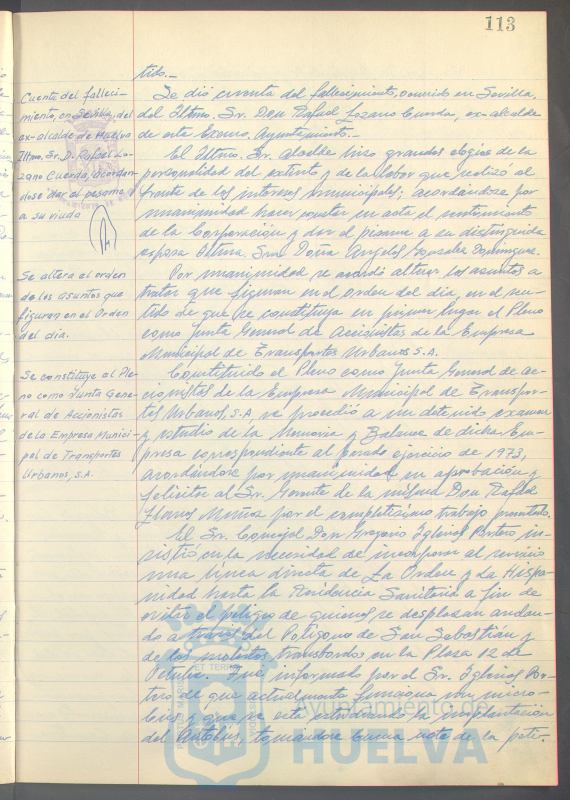 113
tido.-
Cuenta del falleci-
miento, en Sevilla, del
ex-alcalde de Huelva
Iltmo. Sr. D. Rafael Lo-
zano Cuerda, acordan-
dose dar el pesame
a su viuda
Se dió cuenta del fallecimiento, ocurrido en Sevilla,
del Iltmo. Sr. Don Rafael Lozano Cuerda, ex-alcalde
de este Excmo. Ayuntamiento.-
El Iltmo. Sr. Alcalde hizo grandes elogios de la
personalidad del extinto y de la labor que realizó al
frente de los intereses municipales; acordándose por
unanimidad hacer constar en acta el sentimiento
de la Corporación y dar el pésame a su distinguida
esposa Iltma. Sra. Doña Angeles González Domínguez.
Se altera el orden
de los asuntos que
figuran en el Orden
del día.
Por unanimidad se acordó alterar los asuntos a
tratar que figuran en el orden del día, en el sen-
tido de que se constituya en primer lugar el Pleno
como Junta General de Accionistas de la Empresa
Municipal de Transportes Urbanos S.A.
Se constituye el Ple-
no como Junta Gene-
ral de Accionistas
de la Empresa Munici-
pal de Transportes
Urbanos, S.A.
Constituido el Pleno como Junta General de ac-
cionistas de la Empresa Municipal de Transpor-
tes Urbanos, S.A, se procedió a un detenido examen
y estudio de la Memoria y Balance de dicha Em-
presa correspondiente al pasado ejercicio de 1973,
acordándose por unanimidad su aprobación y
felicitar al Sr. Gerente de la misma Don Rafael
Llanos Muñoz por el completísimo trabajo presentado.
El Sr. Concejal Don Gregorio Iglesias Portero in-
sistió en la necesidad de incorporar al servicio
una línea directa de La Orden y La Hispa-
nidad hasta la Residencia Sanitaria a fin de
evitar el peligro de quienes se desplazan andan-
do a través del Polígono de San Sebastián y
de los molestos transbordos en la Plaza 12 de
Octubre. Fue informado por el Sr. Iglesias Por-
tero de que actualmente funciona un micro-
bús y que se está estudiando la implantación
del Autobús, tomándose buena nota de la peti-
Ayuntamiento de
HUELVA